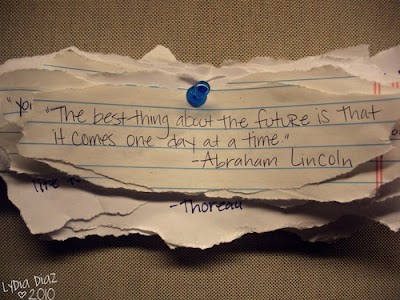 "yo
"The best thing about the future is that
it comes one day at a time."
-Abraham Lincoln
-Thoreau
LYDIA DIAZ
♡ 2010